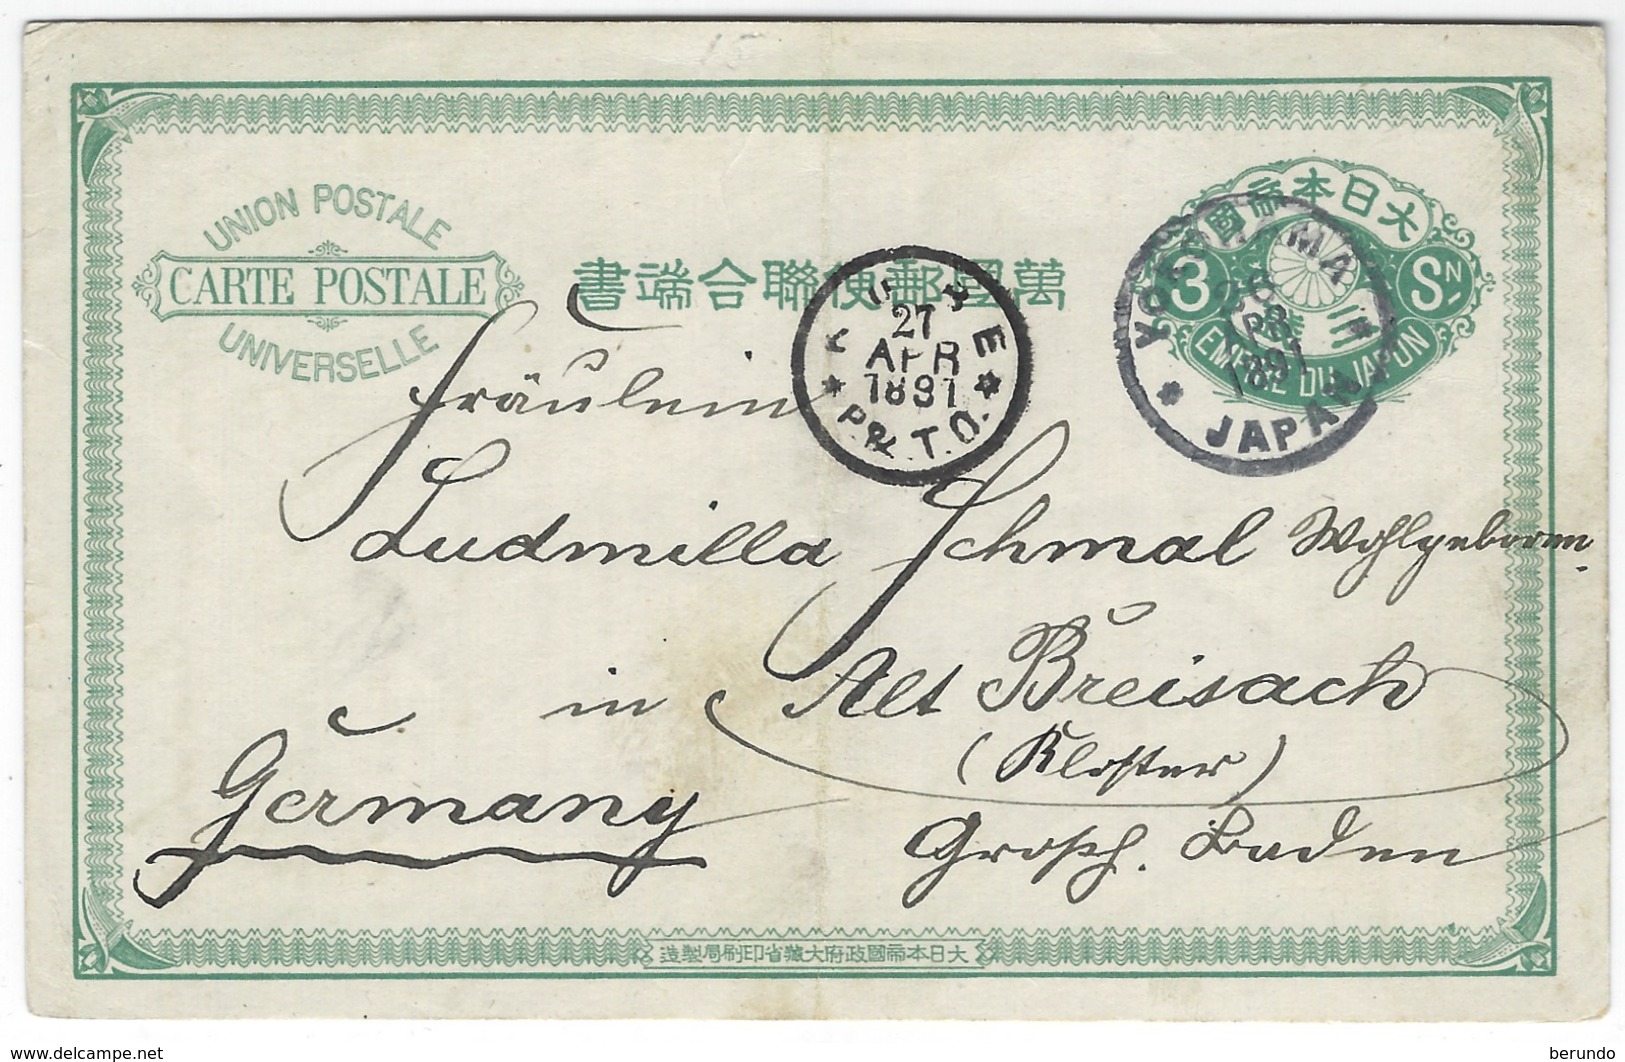 UNION POSTALE
CARTE POSTALE
UNIVERSELLE
書端合聯便郵國萬
大日本帝國
3 Sⁿ
三
EMPIRE DU JAPON
YOKOHAMA
APR
1891
JAPAN
KOBE
27
APR
1891
P. & T. O.
Fräulein
Ludmilla Schmal Wohlgeboren
in Alt Breisach
(Kloster)
Germany
Grosh. Baden
造製局刷印省藏大府政國帝本日大
delcampe.net
berundo